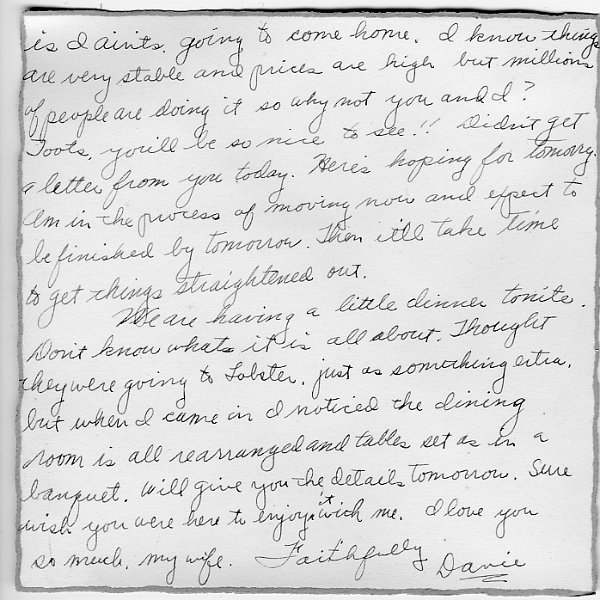 is I aint's, going to come home. I know things
are very stable and prices are high but millions
of people are doing it so why not you and I?
Toots, you'll be so nice to see!! Didn't get
a letter from you today. Here's hoping for tomorry.
Am in the process of moving now and expect to
be finished by tomorrow. Then it'll take time
to get things straightened out.
We are having a little dinner tonite.
Don't know whats it is all about. Thought
they were going to Lobster, just as something extra,
but when I came in I noticed the dining
room is all rearranged and tables set as in a
banquet. Will give you the details tomorrow. Sure
wish you were here to enjoy it with me. I love you
so much, my wife. Faithfully
Davie